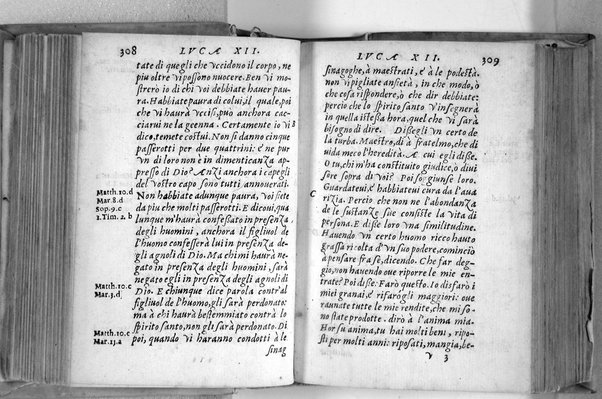 308
LVCAE XII.
tate di quegli che vccidono il corpo, ne
piu oltre vi possono nuocere. Ben vi mo
strerò io di chi voi debbiate hauer pau
ra. Habbiate paura di colui, il quale, poi
che vi haurà vccisi, può anchora cac
ciarui ne la geenna. Certamente io vi
dico, temete costui. Non si danno cinque
B
passerotti per due quattrini: & ne pur
vn di loro non è in dimenticanza ap
presso di Dio? Anzi anchora i capegli
del vostro capo sono tutti annouerati.
Matth.10.d
Non habbiate adunque paura, voi sete
Mar.8.d
da piu che molti passerotti. E dicoui, qua
Sop.9.c
lunque m'haurà confessato in presenza
1.Tim.2.b
degli huomini, anchora il figliuol de
l'huomo confesserà lui in presenza de
gli agnoli di Dio. Ma chi mi haurà ne
gato in presenza degli huomini, sarà
negato egli in presenza degli agnoli di
Matth.10.c
Dio. E chiunque dice parola contra al
Mar.3.d
figliuol de l'huomo, gli sarà perdonato:
ma à chi haurà bestemmiato contra lo
spirito santo, non gli sarà perdonato. Di
Matth.10.c
poi, quando vi haranno condotti à le
Mar.13.a
sinag
LVCAE XII.
309
sinagoghe, à maestrati, & à le podestà.
non vi pigliate ansietà, in che modo, ò
che cosa rispondere, ò che dir debbiate:
percio che lo spirito santo v'insegnerà
in quella istessa hora, quel che vi sarà
bisogno di dire. Dissegli vn certo de
la turba. Maestro, di à fratelmo, che di
uida meco l'heredità. Ae cui egli disse.
O tu, chi m'ha constituito giudice, ò diui
sore sopra di voi? Poi soggiunse loro.
C
Guardateui, & habbiateui cura da l'aua
rizia. Percio che non ne l'abondanza
de le sustanze sue consiste la vita di
persona. E disse loro vna similitudine.
Hauendo vn certo huomo ricco hauto
grassa ricolta d'vn suo podere, cominciò
à pensare fra se, dicendo. Che far deg
gio, non hauendo oue riporre le mie en
trate? Poi disse. Farò questo. Io disfarò i
miei granai, & rifarogli maggiori: oue
raunate tutte le mie rendite, che mi so
no state prodotte. dirò à l'anima mia.
Hor su anima, tu hai molti beni, ripo
sti per molti anni: riposati, mangia, be-
V 3